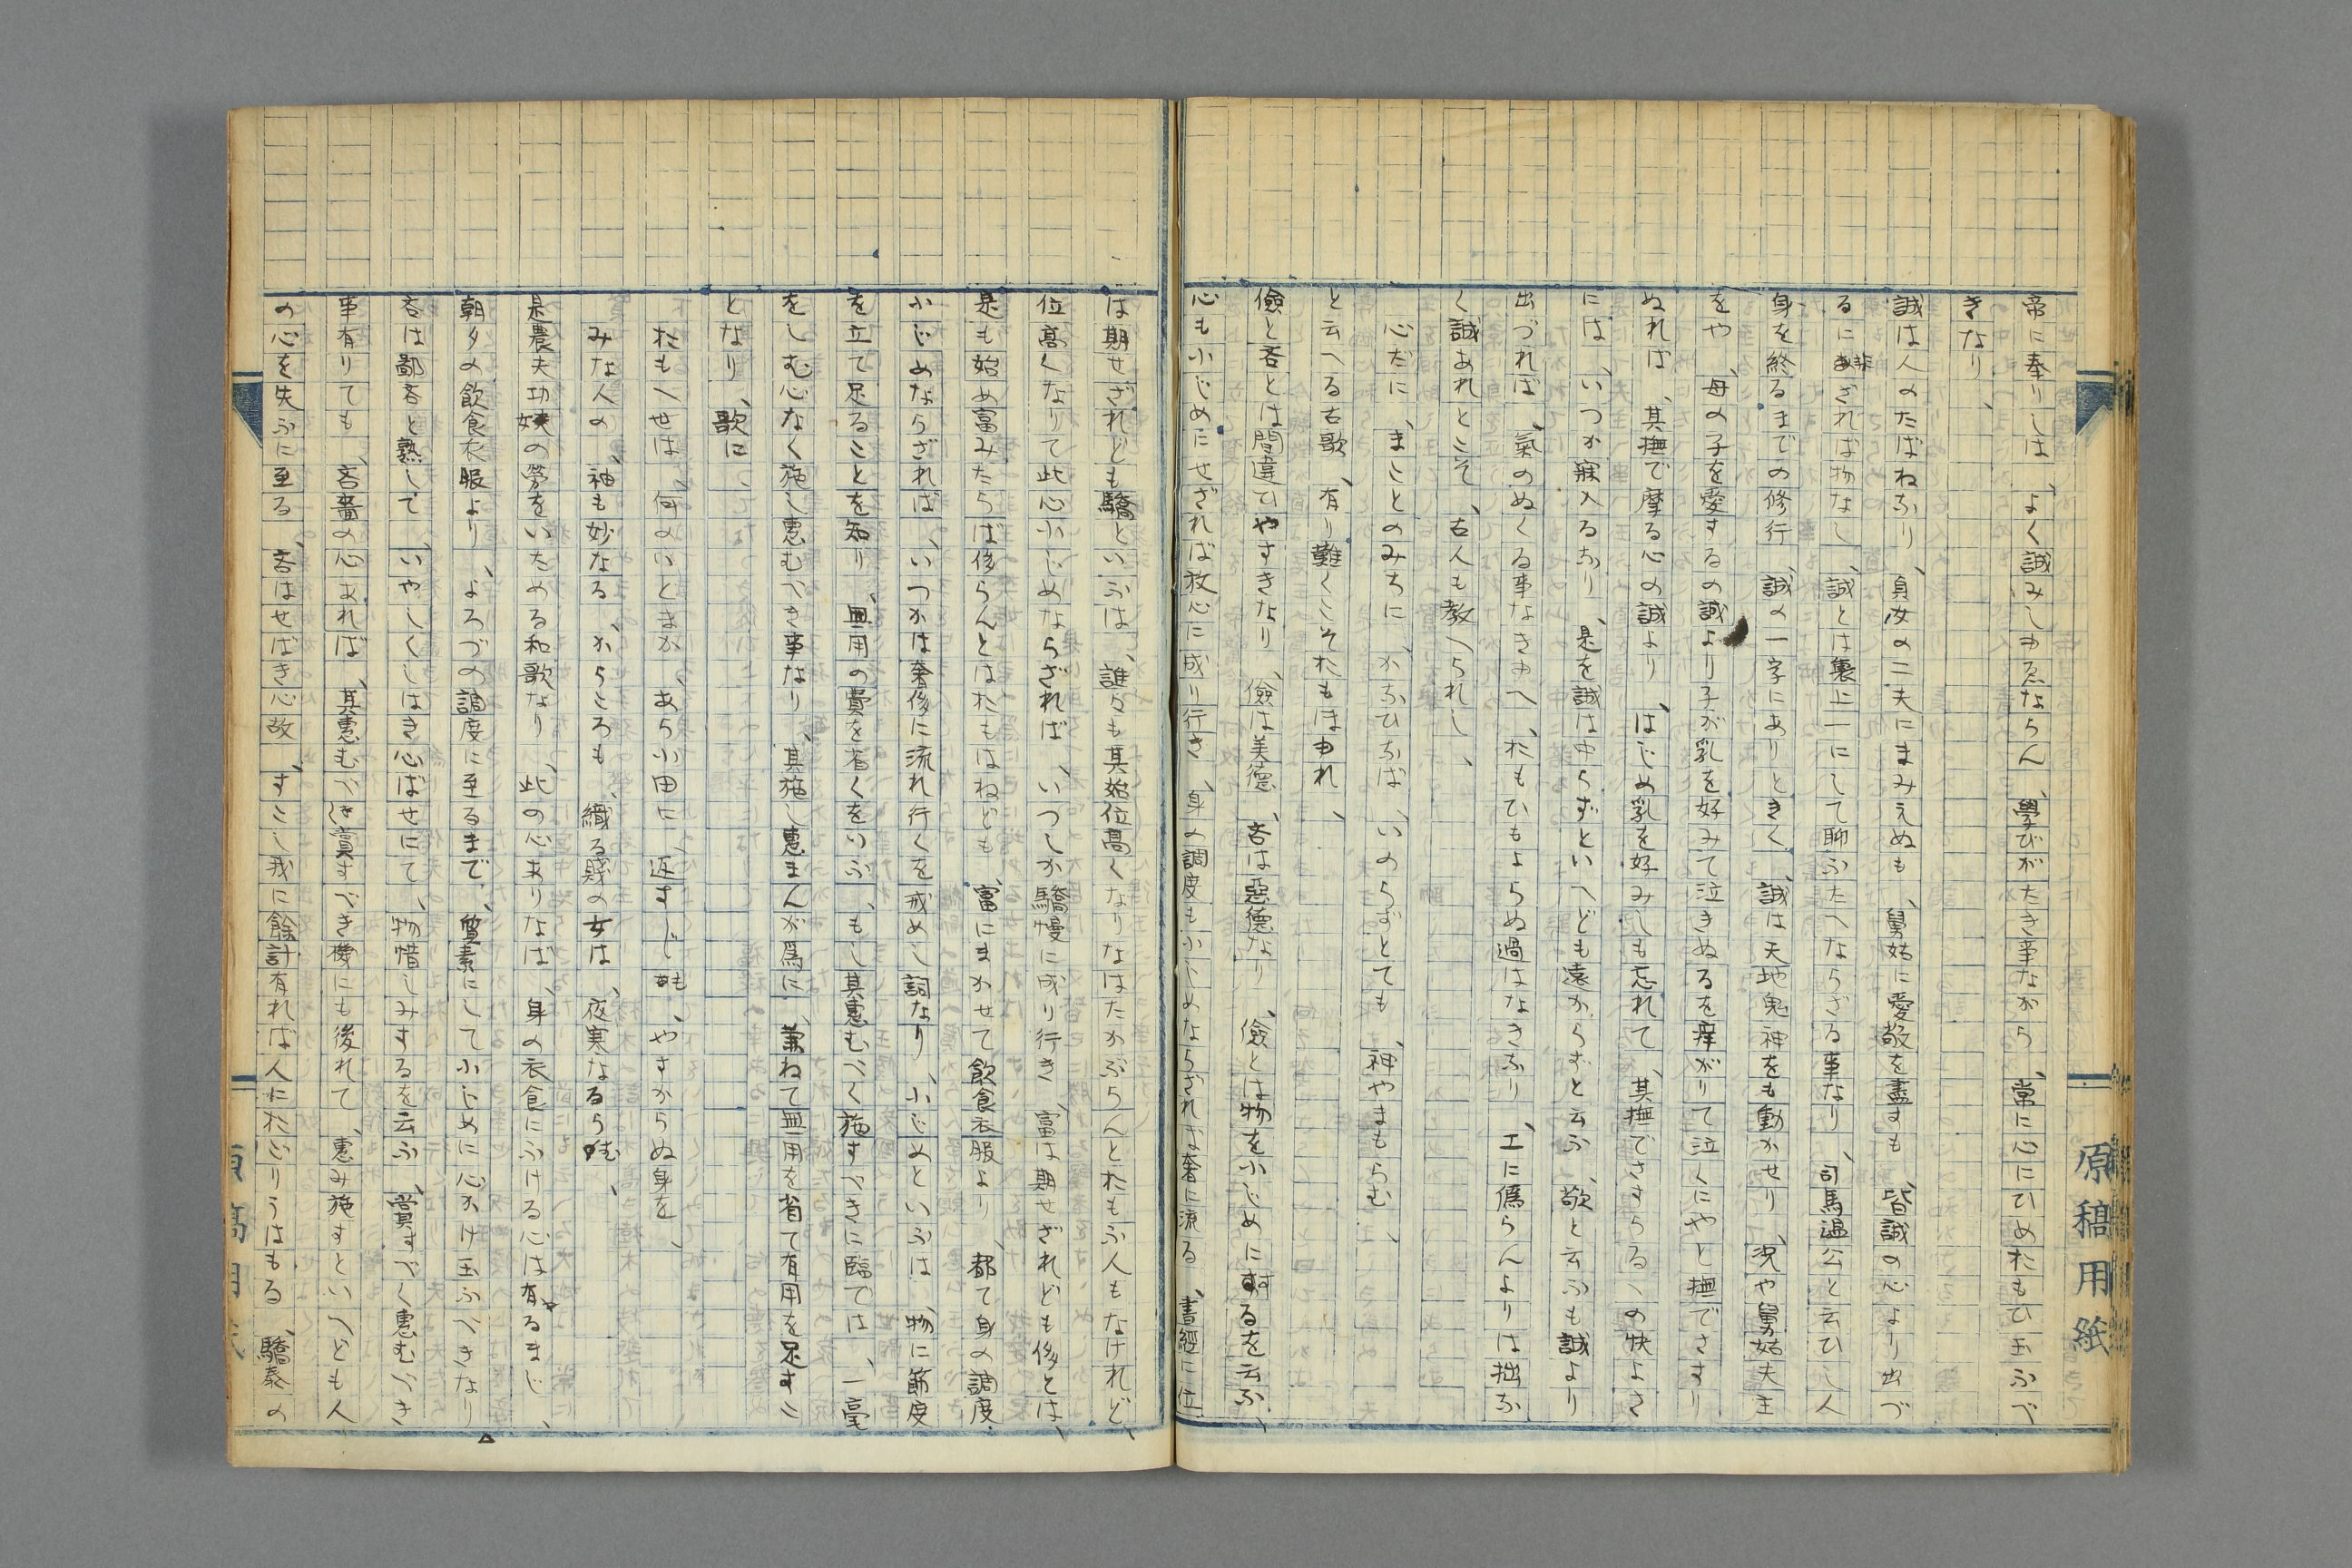 帝に奉りしは、よく誠みしゆゑならん、學びがたき事ながら、常に心にひめたもひ玉ふべ
きなり、
誠は人のたばねなり、貞女の二夫にまみえぬも、舅姑に愛敬を盡すも、皆誠の心より出づ
るに非ざれば物なし、誠とは裏上一にして聊ふたへならざる事なり、司馬温公と云ひし人
身を終るまでの修行、誠の一字にありときく、誠は天地鬼神をも動かせり、況や舅姑夫主
をや、母の子を愛するの誠より子が乳を好みて泣きぬるを痒がりて泣くにやと撫でさすり
ぬれば、其撫で摩る心の誠より、はじめ乳を好みしも忘れて、其撫でさすらるゝの快よさ
には、いつか寐入るなり、是を誠は中らずといへども遠からずと云ふ、敬と云ふも誠より
出づれば、氣のぬくる事なきゆへ、たもひもよらぬ過はなきなり、工に僞らんよりは拙な
く誠あれとこそ、古人も教へられし、
心だに、まことのみちに、かなひなば、いのらずとても、神やまもらむ、
と云へる古歌、有り難くこそたもはゆれ、
儉と吝とは間違ひやすきなり、儉は美德、吝は惡德なり、儉とは物を小じめにするを云ふ、
心も小じめにせざれば放心に成り行き、身の調度も小じめならざれば奢に流る、書經に位
は期せざれども驕といふは、誰々も其始位髙くなりなはたかぶらんとたもふ人もなけれど、
位髙くなりて此心小じめならざれば、いつしか驕慢に成り行き、富は期せざれども侈とは、
是も始め富みたらば侈らんとはたもはねども、富にまかせて飲食衣服より、都て身の調度、
小じめならざれば、いつかは奢侈に流れ行くを戒めし詞なり、小じめといふは、物に節度
を立て足ることを知り、無用の費を省くをいふ、もし其惠むべく施すべきに臨ては、一毫
をしむ心なく施し惠むべき事なり、其施し惠まんが爲に、兼ねて無用を省て有用を足すこ
となり、歌に、
たもへ世は、何のいとまか、あら小田に、返すじも、やすからぬ身を、
みな人の、袖も妙なる、からころも、織る賤の女は、夜寒なるらむ、
是農夫功婦の勞をいためる和歌なり、此の心ありなば、身の衣食にふける心は有るまじ、
朝夕の飲食衣服より、よろづの調度に至るまで、質素にして小じめに心がけ玉ふべきなり
吝は鄙吝と熟して、いやしくしはき心ばせにて、物惜しみするを云ふ、賞すべく惠むべき
事有りても、吝嗇の心あれば、其惠むべき賞すべき機にも後れて、惠み施すといへども人
の心を失ふに至る、吝はせばき心故、すこし我に餘計有れば人にたごりうはもる、驕泰の
原稿用紙